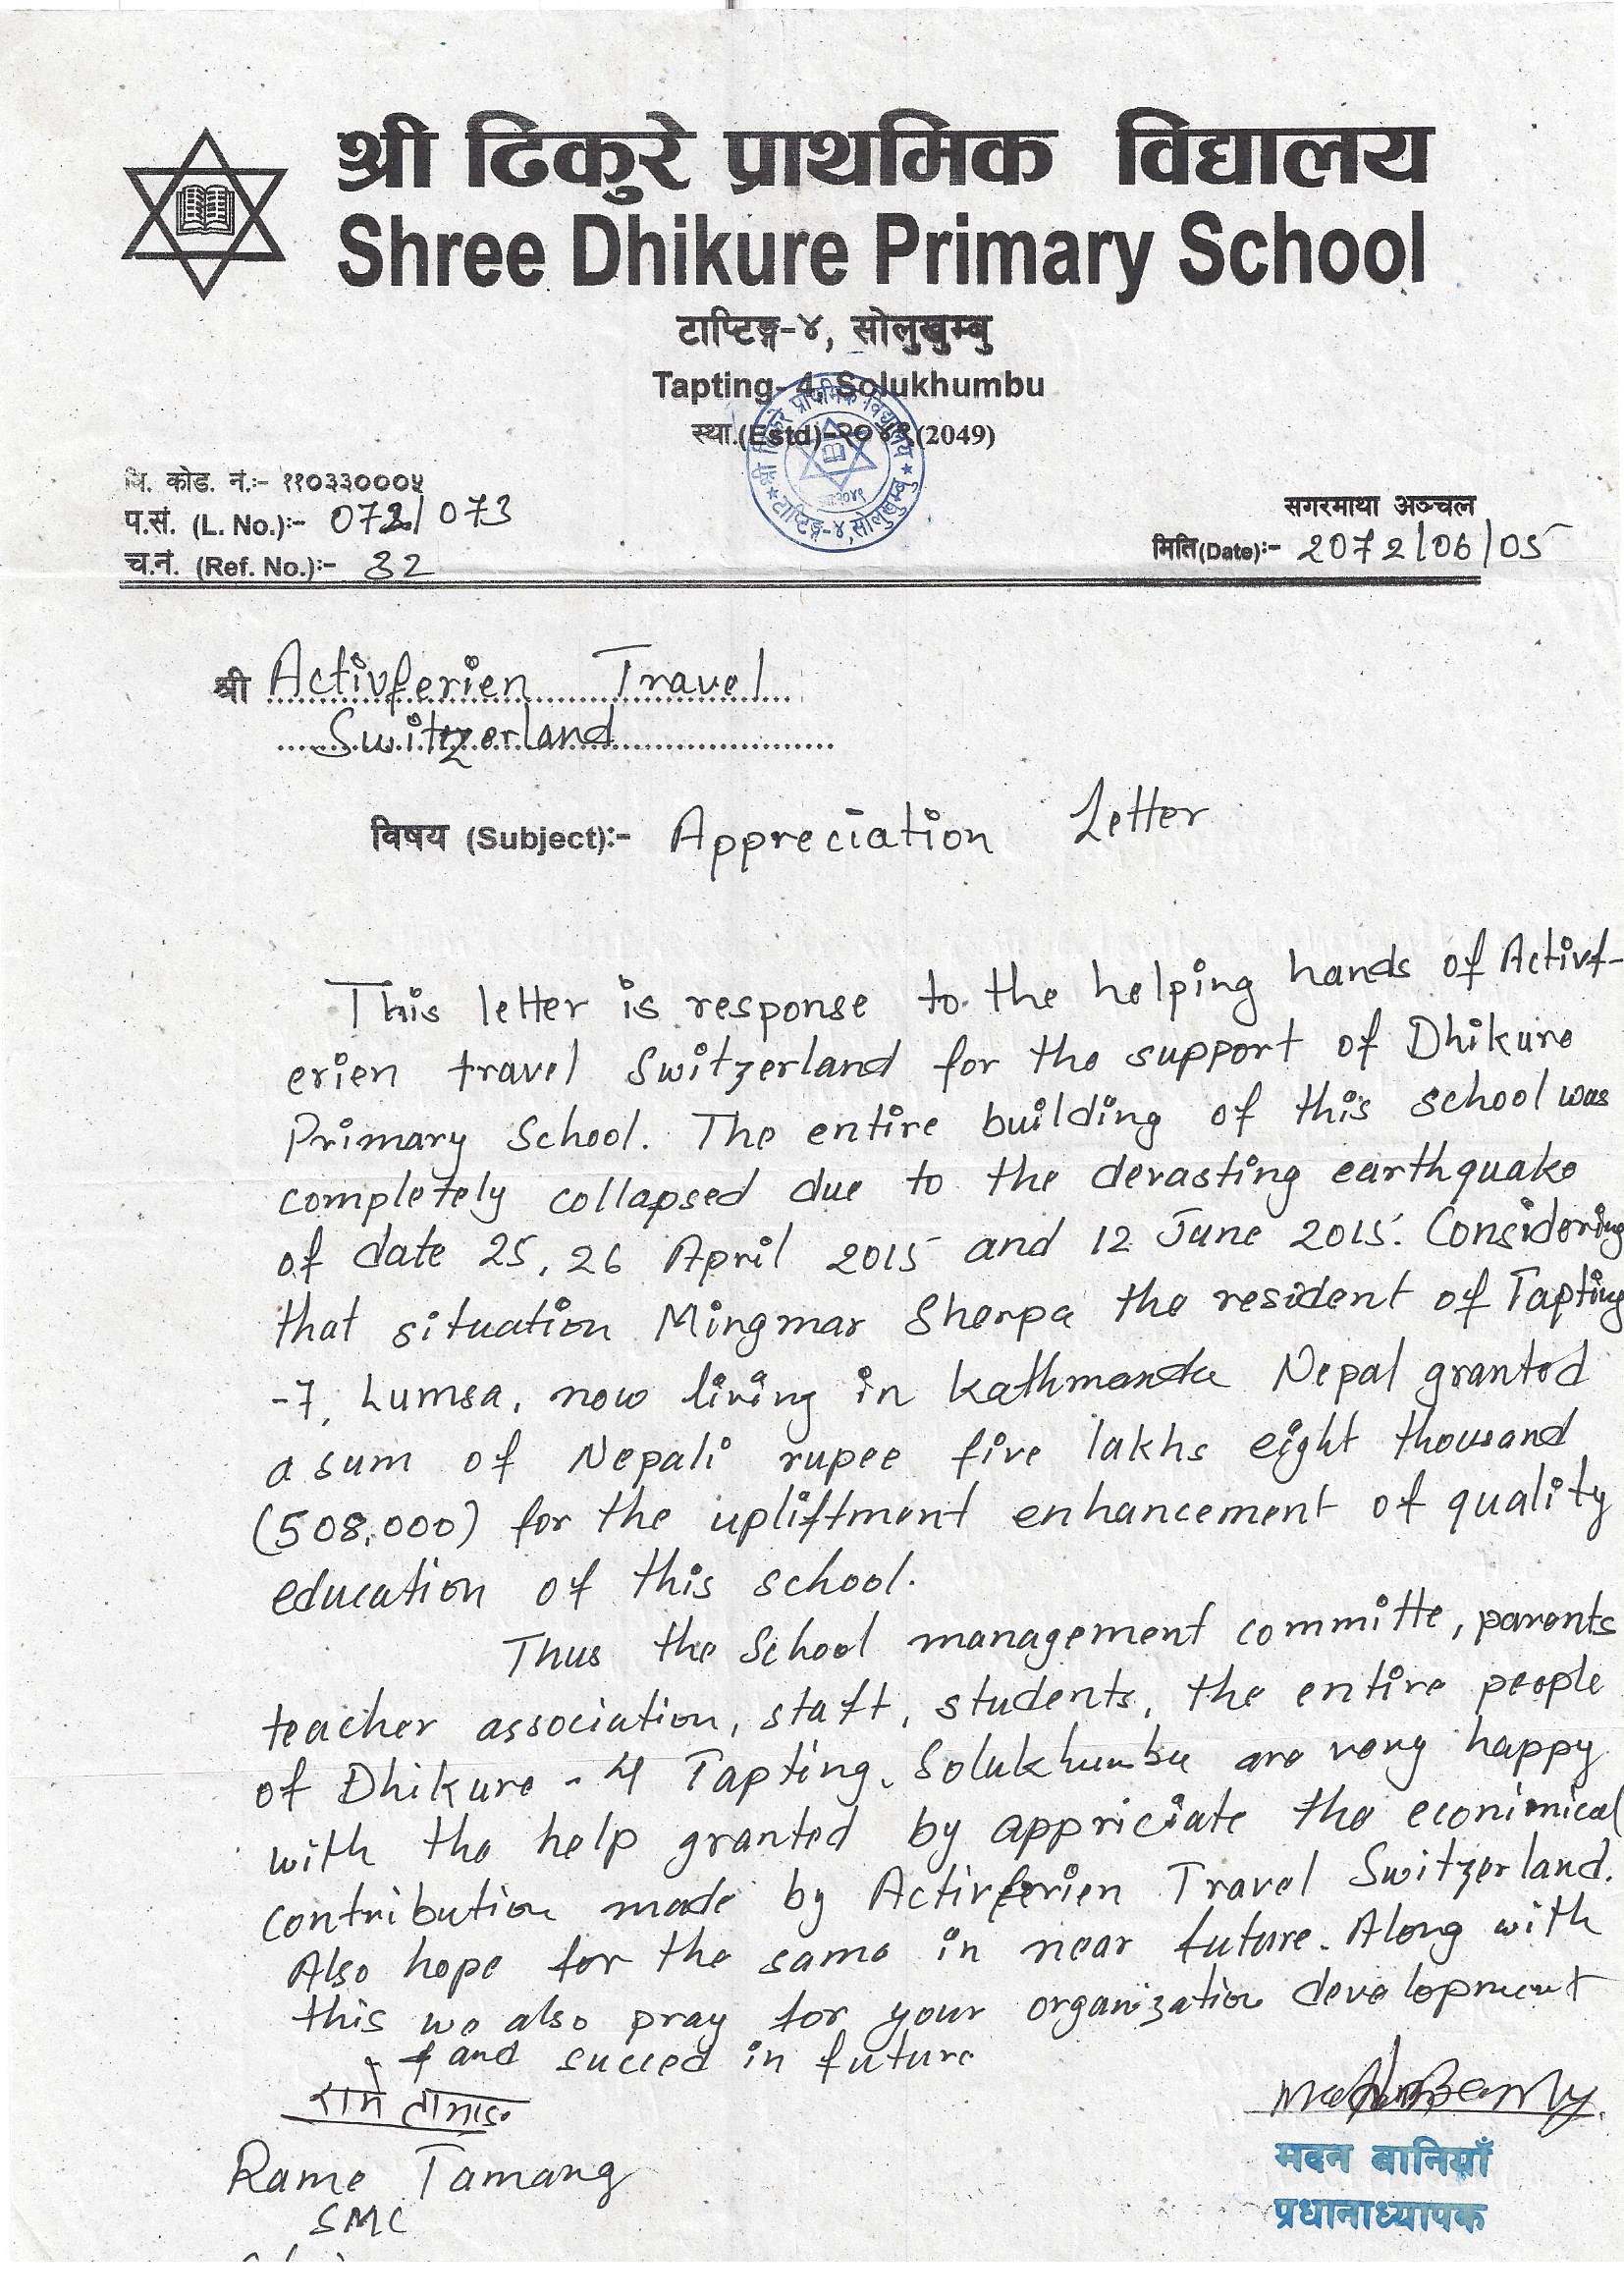 श्री ढिकुरे प्राथमिक विद्यालय
Shree Dhikure Primary School
टाप्टिङ्ग-४, सोलुखुम्बु
Tapting- 4, Solukhumbu
स्था.(Estd)-२०४९(2049)
श्री ढिकुरे प्राथमिक विद्यालय
टाप्टिङ्ग-४, सोलुखुम्बु
वि. कोड. नं.:- ११०३३०००५
सगरमाथा अञ्चल
प.सं. (L. No.):- 072/073
मिति(Date):- 2072/06/05
च.नं. (Ref. No.):- 32
श्री Activferien Travel
Switzerland
विषय (Subject):- Appreciation Letter
This letter is response to the helping hands of Activf-
erien travel Switzerland for the support of Dhikure
Primary School. The entire building of this school was
completely collapsed due to the devasting earthquake
of date 25, 26 April 2015 and 12 June 2015. Considering
that situation Mingmar Sherpa the resident of Tapting
-7, Lumsa, now living in Kathmandu Nepal granted
a sum of Nepali rupee five lakhs eight thousand
(508,000) for the upliftment enhancement of quality
education of this school.
Thus the School management committe, parents
teacher association, staff, students, the entire people
of Dhikure - 4 Tapting, Solukhumbu are very happy
with the help granted by appriciate the econimical
contribution made by Activferien Travel Switzerland.
Also hope for the same in near future. Along with
this we also pray for your organization development
and succed in future
रामे तामाङ
Rame Tamang
SMC
मदन बानियाँ
प्रधानाध्यापक